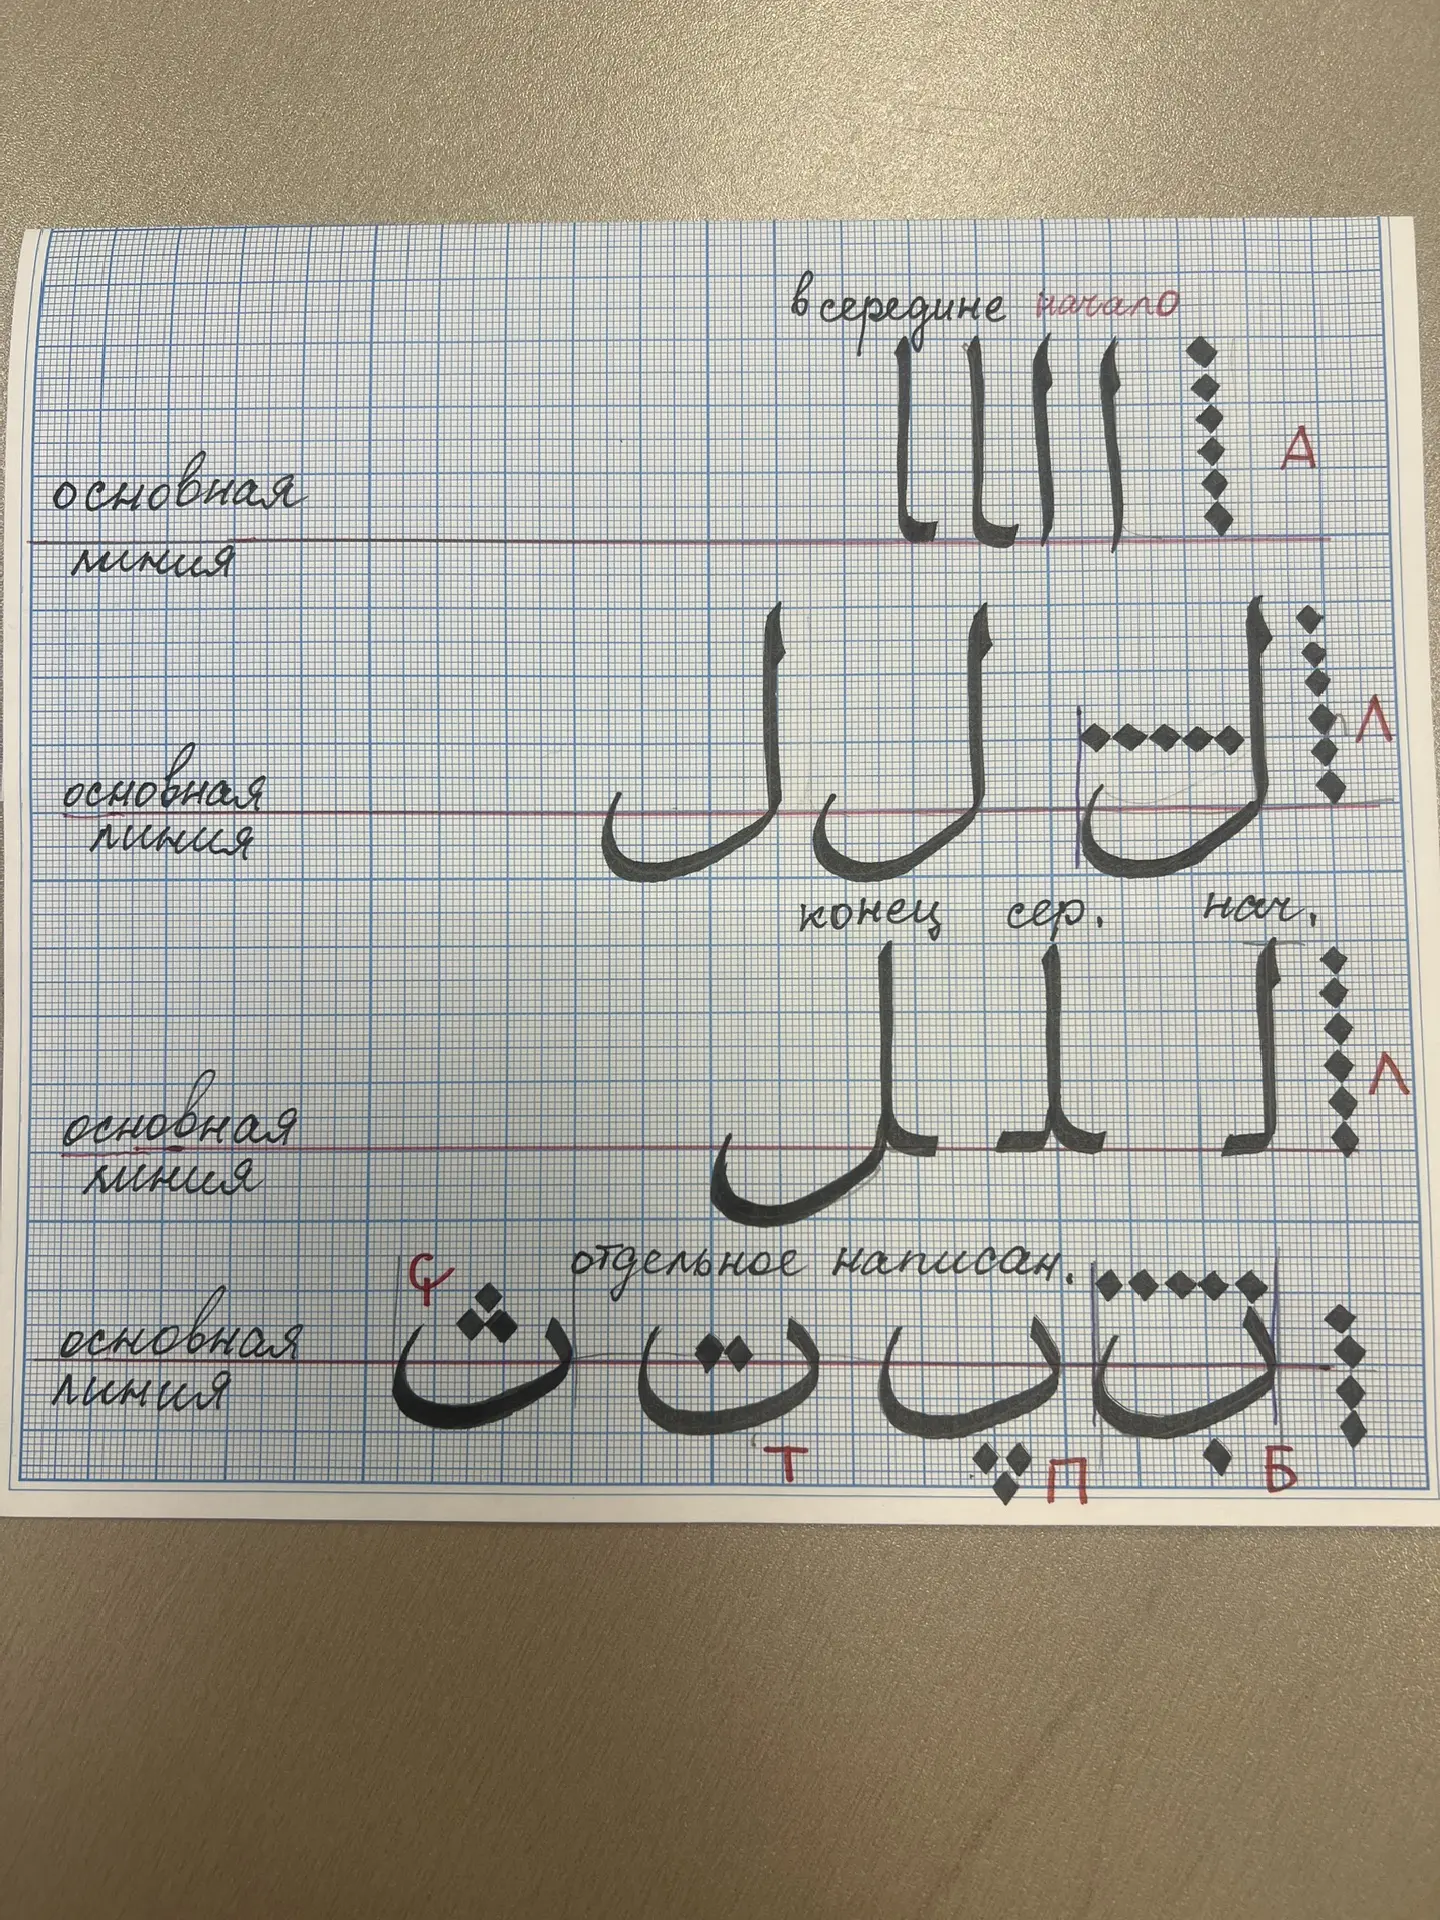 в середине начало
ا ا ـا ـا А
основная
линия
ل ل ل Л
основная
линия
конец сер. нач.
لـ ـلـ ـل Л
основная
линия
отдельное написан.
ب پ ت ث
Б П Т Ҫ
основная
линия